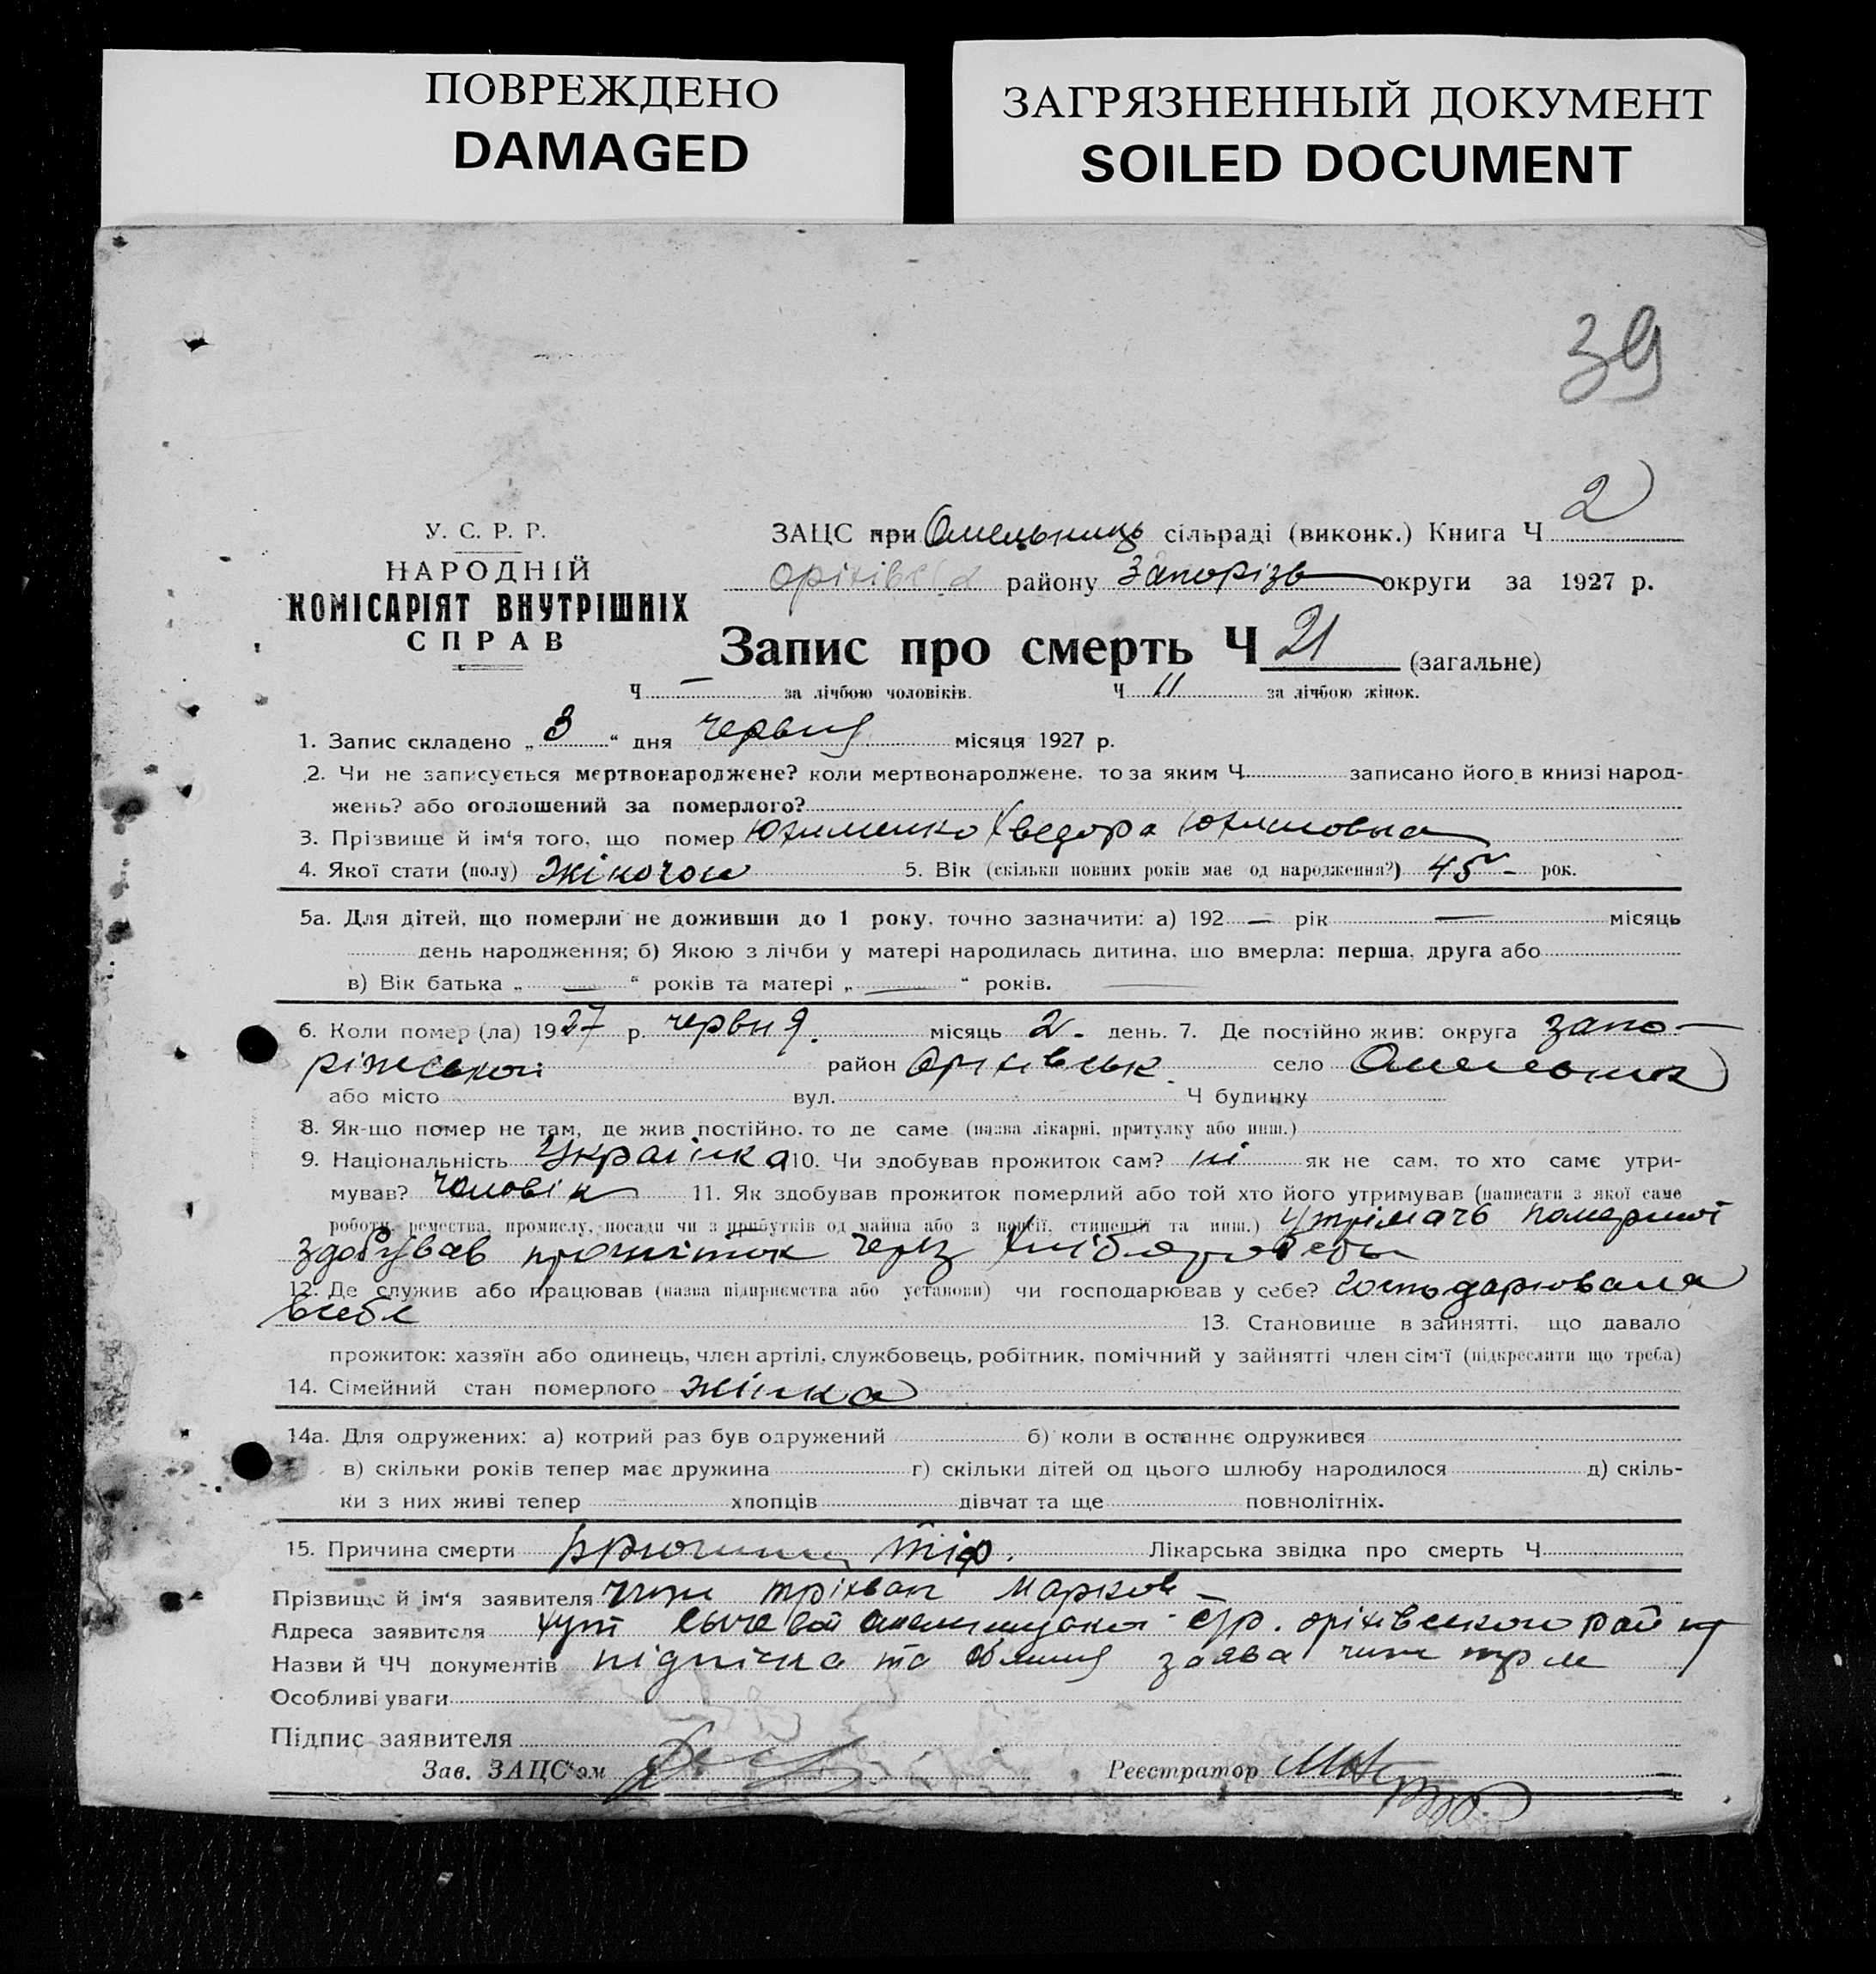 ПОВРЕЖДЕНО
DAMAGED
ЗАГРЯЗНЕННЫЙ ДОКУМЕНТ
SOILED DOCUMENT
39
У. С. Р. Р.
НАРОДНІЙ
КОМІСАРІЯТ ВНУТРІШНІХ
СПРАВ
ЗАЦС при Омельниц сільраді (виконк.) Книга Ч 2
оріхівськ району Запорізь округи за 1927 р.
Запис про смерть Ч 21 (загальне)
Ч — за лічбою чоловіків. Ч 11 за лічбою жінок.
1. Запис складено „ 3 “ дня червня місяця 1927 р.
2. Чи не записується мертвонароджене? коли мертвонароджене, то за яким Ч записано його в книзі народ-
жень? або оголошений за померлого?
3. Прізвище й ім'я того, що помер Юхименко Хведора Юхимовна
4. Якої стати (полу) жіночои 5. Вік (скільки повних років має од народження?) 45 - рок.
5а. Для дітей, що померли не доживши до 1 року, точно зазначити: а) 192 — рік — місяць
день народження; б) Якою з лічби у матері народилась дитина, що вмерла: перша, друга або
в) Вік батька „ — “ років та матері „ — “ років.
6. Коли помер (ла) 1927 р. червня. місяць 2. день. 7. Де постійно жив: округа запо-
ріжськой район оріхівськ. село Омельник
або місто вул. Ч будинку
8. Як-що помер не там, де жив постійно, то де саме (назва лікарні, притулку або инш.)
9. Національність Українка 10. Чи здобував прожиток сам? ні як не сам, то хто саме утри-
мував? чоловік 11. Як здобував прожиток померлий або той хто його утримував (написати з якої саме
роботи, ремества, промислу, посади чи з прибутків од майна або з пенсії, стипендії та инш.) утрімачь помершої
здобував прожіток через хліборобство
12. Де служив або працював (назва підприємства або установи) чи господарював у себе? господарювала
всебе 13. Становище в зайнятті, що давало
прожиток: хазяїн або одинець, член артілі, службовець, робітник, помічний у зайнятті член сім'ї (підкреслити що треба)
14. Сімейний стан померлого жінка
14а. Для одружених: а) котрий раз був одружений б) коли в останнє одружився
в) скільки років тепер має дружина г) скільки дітей од цього шлюбу народилося д) скіль-
ки з них живі тепер хлопців дівчат та ще повнолітніх.
15. Причина смерти тіф. Лікарська звідка про смерть Ч
Прізвище й ім'я заявителя тріхван Марков
Адреса заявителя хут оріхівського району
Назви й ЧЧ документів підпіска та заява
Особливі уваги
Підпис заявителя
Зав. ЗАЦС'ом Реєстратор